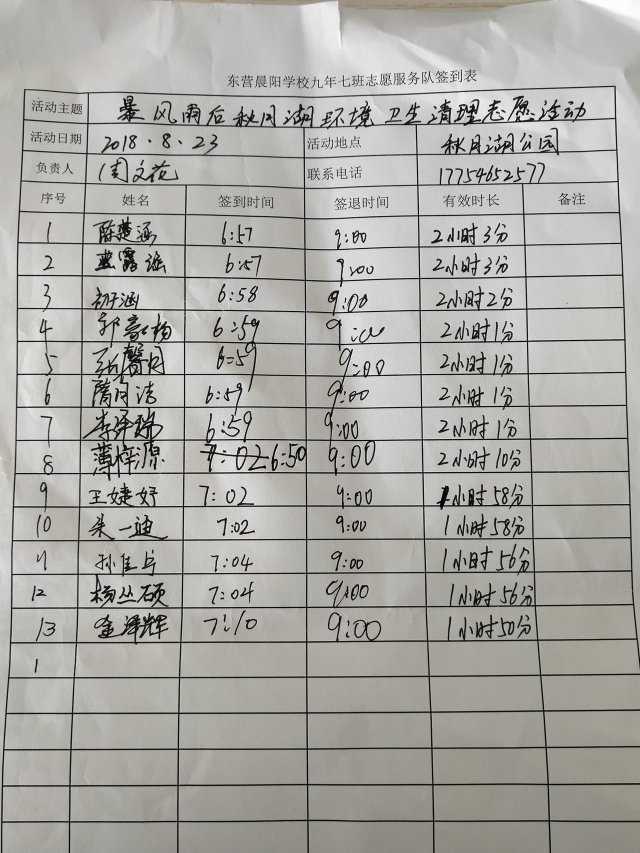 东营晨阳学校九年七班志愿服务队签到表
活动主题 暴风雨后秋月湖环境卫生清理志愿活动
活动日期 2018.8.23 活动地点 秋月湖公园
负责人 周文花 联系电话 17754652577
序号 姓名 签到时间 签退时间 有效时长 备注
1 陈楚涵 6:57 9:00 2小时3分
2 孟露涵 6:57 9:00 2小时3分
3 初涵 6:58 9:00 2小时2分
4 郭 杨 6:59 9:00 2小时1分
5 张馨月 6:59 9:00 2小时1分
6 隋月洁 6:59 9:00 2小时1分
7 李泽瑞 6:59 9:00 2小时1分
8 薄梓源 7:02 6:50 9:00 2小时10分
9 王婕妤 7:02 9:00 1小时58分
10 朱一迪 7:02 9:00 1小时58分
11 孙佳 7:04 9:00 1小时56分
12 杨丛硕 7:04 9:00 1小时56分
13 金泽辉 7:10 9:00 1小时50分
1